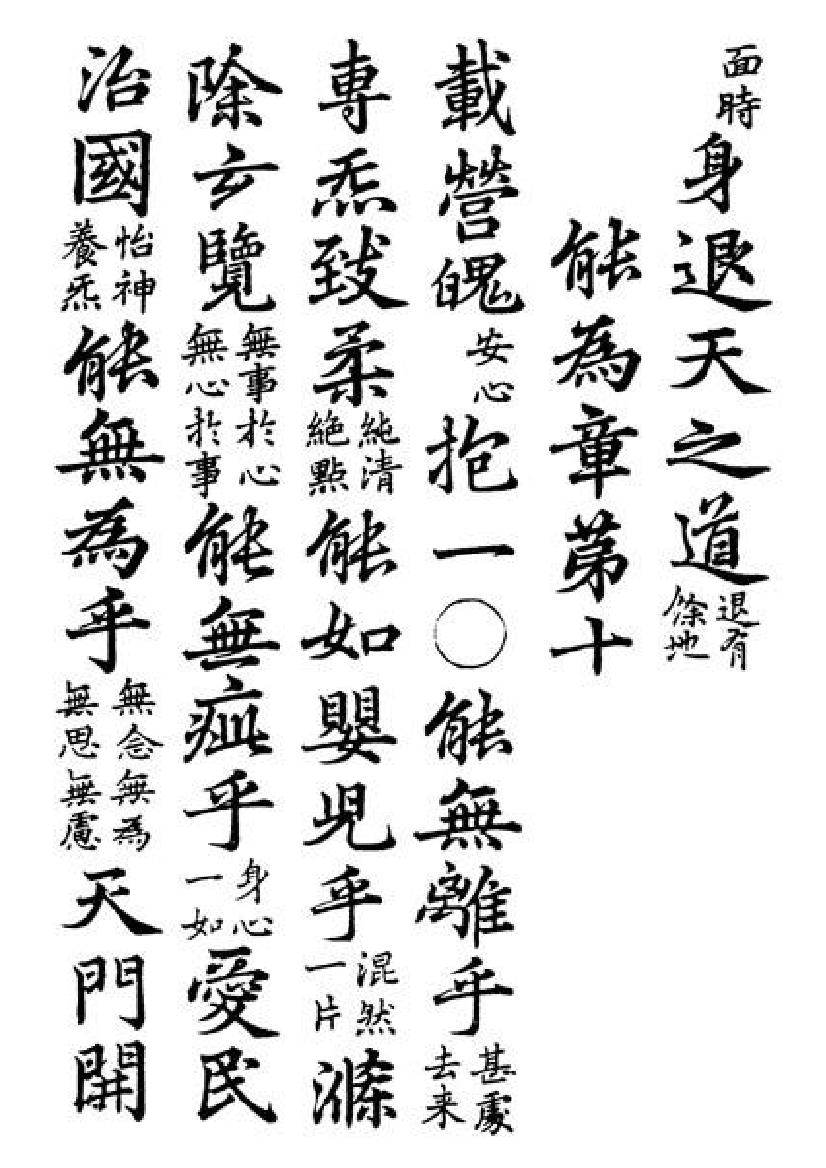 面時身退天之道退有餘地
能為章第十
載營魄安心抱一〇能無離乎甚處去来
專炁致柔純清絶點能如嬰児乎混然一片滌
除玄覽無事於心無心於事能無疵乎身心一如愛民
治國怡神養炁能無為乎無念無為無思無慮天門開